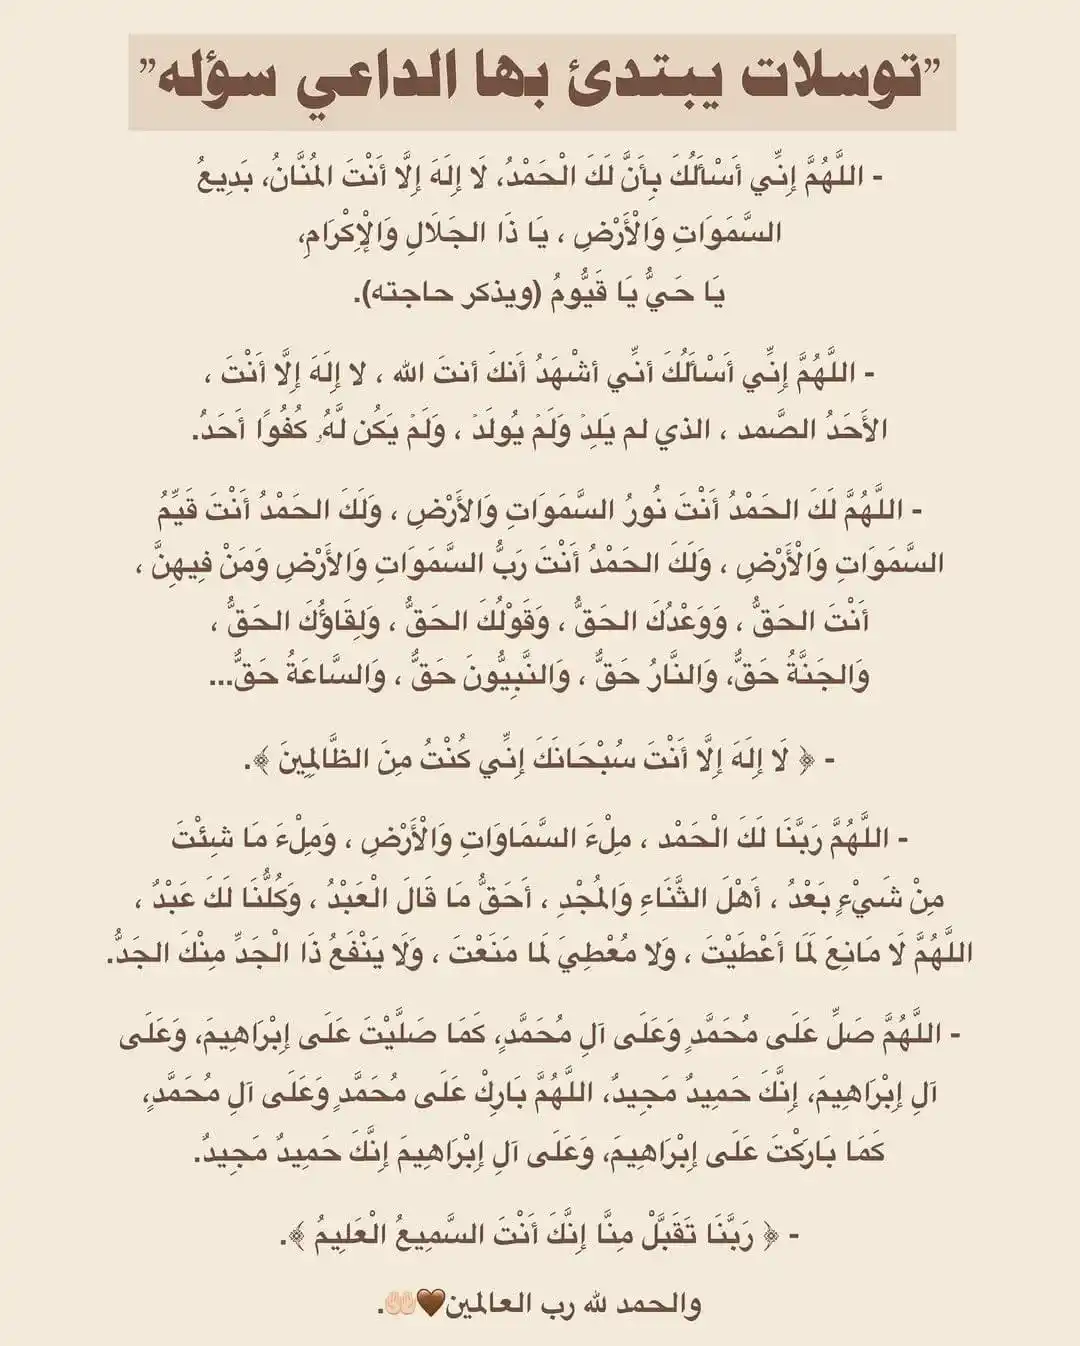 ”توسلات يبتدئ بها الداعي سؤله”
- اللَّهُمَّ إِنِّي أَسْأَلُكَ بِأَنَّ لَكَ الْحَمْدُ، لَا إِلَهَ إِلَّا أَنْتَ المُنَّانُ، بَدِيعُ
السَّمَوَاتِ وَالْأَرْضِ ، يَا ذَا الجَلَالِ وَالْإِكْرَامِ،
يَا حَيُّ يَا قَيُّومُ (ويذكر حاجته).
- اللَّهُمَّ إِنِّي أَسْأَلُكَ أنِّي أشْهَدُ أَنكَ أنتَ الله ، لا إِلَهَ إِلَّا أَنْتَ ،
الأَحَدُ الصَّمد ، الذي لم يَلِدْ وَلَمْ يُولَدْ ، وَلَمْ يَكُن لَّهُۥ كُفُوًا أَحَدُ.
- اللَّهُمَّ لَكَ الحَمْدُ أَنْتَ نُورُ السَّمَوَاتِ وَالأَرْضِ ، وَلَكَ الحَمْدُ أَنْتَ قَيِّمُ
السَّمَوَاتِ وَالْأَرْضِ ، وَلَكَ الحَمْدُ أَنْتَ رَبُّ السَّمَوَاتِ وَالأَرْضِ وَمَنْ فِيهِنَّ ،
أَنْتَ الحَقُّ ، وَوَعْدُكَ الحَقُّ ، وَقَوْلُكَ الحَقُّ ، وَلِقَاؤُكَ الحَقُّ ،
وَالجَنَّةُ حَقٌّ، وَالنَّارُ حَقٌّ ، وَالنَّبِيُّونَ حَقٌّ ، وَالسَّاعَةُ حَقٌّ...
- ﴿ لَا إِلَهَ إِلَّا أَنْتَ سُبْحَانَكَ إِنِّي كُنْتُ مِنَ الظَّالِمِينَ ﴾.
- اللَّهُمَّ رَبَّنَا لَكَ الْحَمْد ، مِلْءَ السَّمَاوَاتِ وَالْأَرْضِ ، وَمِلْءَ مَا شِئْتَ
مِنْ شَيْءٍ بَعْدُ ، أَهْلَ الثَّنَاءِ وَالمُجْدِ ، أَحَقُّ مَا قَالَ الْعَبْدُ ، وَكُلُّنَا لَكَ عَبْدٌ ،
اللَّهُمَّ لَا مَانِعَ لَمَا أَعْطَيْتَ ، وَلا مُعْطِيَ لَمَا مَنَعْتَ ، وَلَا يَنْفَعُ ذَا الْجَدِّ مِنْكَ الجَدُّ.
- اللَّهُمَّ صَلِّ عَلَى مُحَمَّدٍ وَعَلَى آلِ مُحَمَّدٍ، كَمَا صَلَّيْتَ عَلَى إِبْرَاهِيمَ، وَعَلَى
آلِ إِبْرَاهِيمَ، إِنَّكَ حَمِيدٌ مَجِيدٌ، اللَّهُمَّ بَارِكْ عَلَى مُحَمَّدٍ وَعَلَى آلِ مُحَمَّدٍ،
كَمَا بَارَكْتَ عَلَى إِبْرَاهِيمَ، وَعَلَى آلِ إِبْرَاهِيمَ إِنَّكَ حَمِيدٌ مَجِيدٌ.
- ﴿ رَبَّنَا تَقَبَّلْ مِنَّا إِنَّكَ أَنْتَ السَّمِيعُ الْعَلِيمُ ﴾.
والحمد لله رب العالمين🤎🤲🏻.